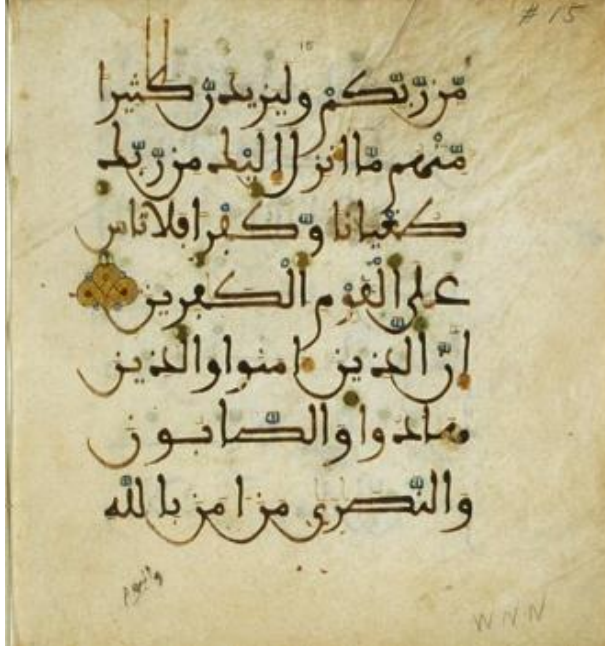 # 15
15
مّن رّبّكم وليزيدنّ كثيرا
مّنهم مّا انزل اليك من رّبّك
طغيانا وّكفرا فلا تاس
على القوم الكفرين
انّ الذين امنوا والذين
هادوا والصّابون
والنّصرى من امن بالله
واليوم
WNN